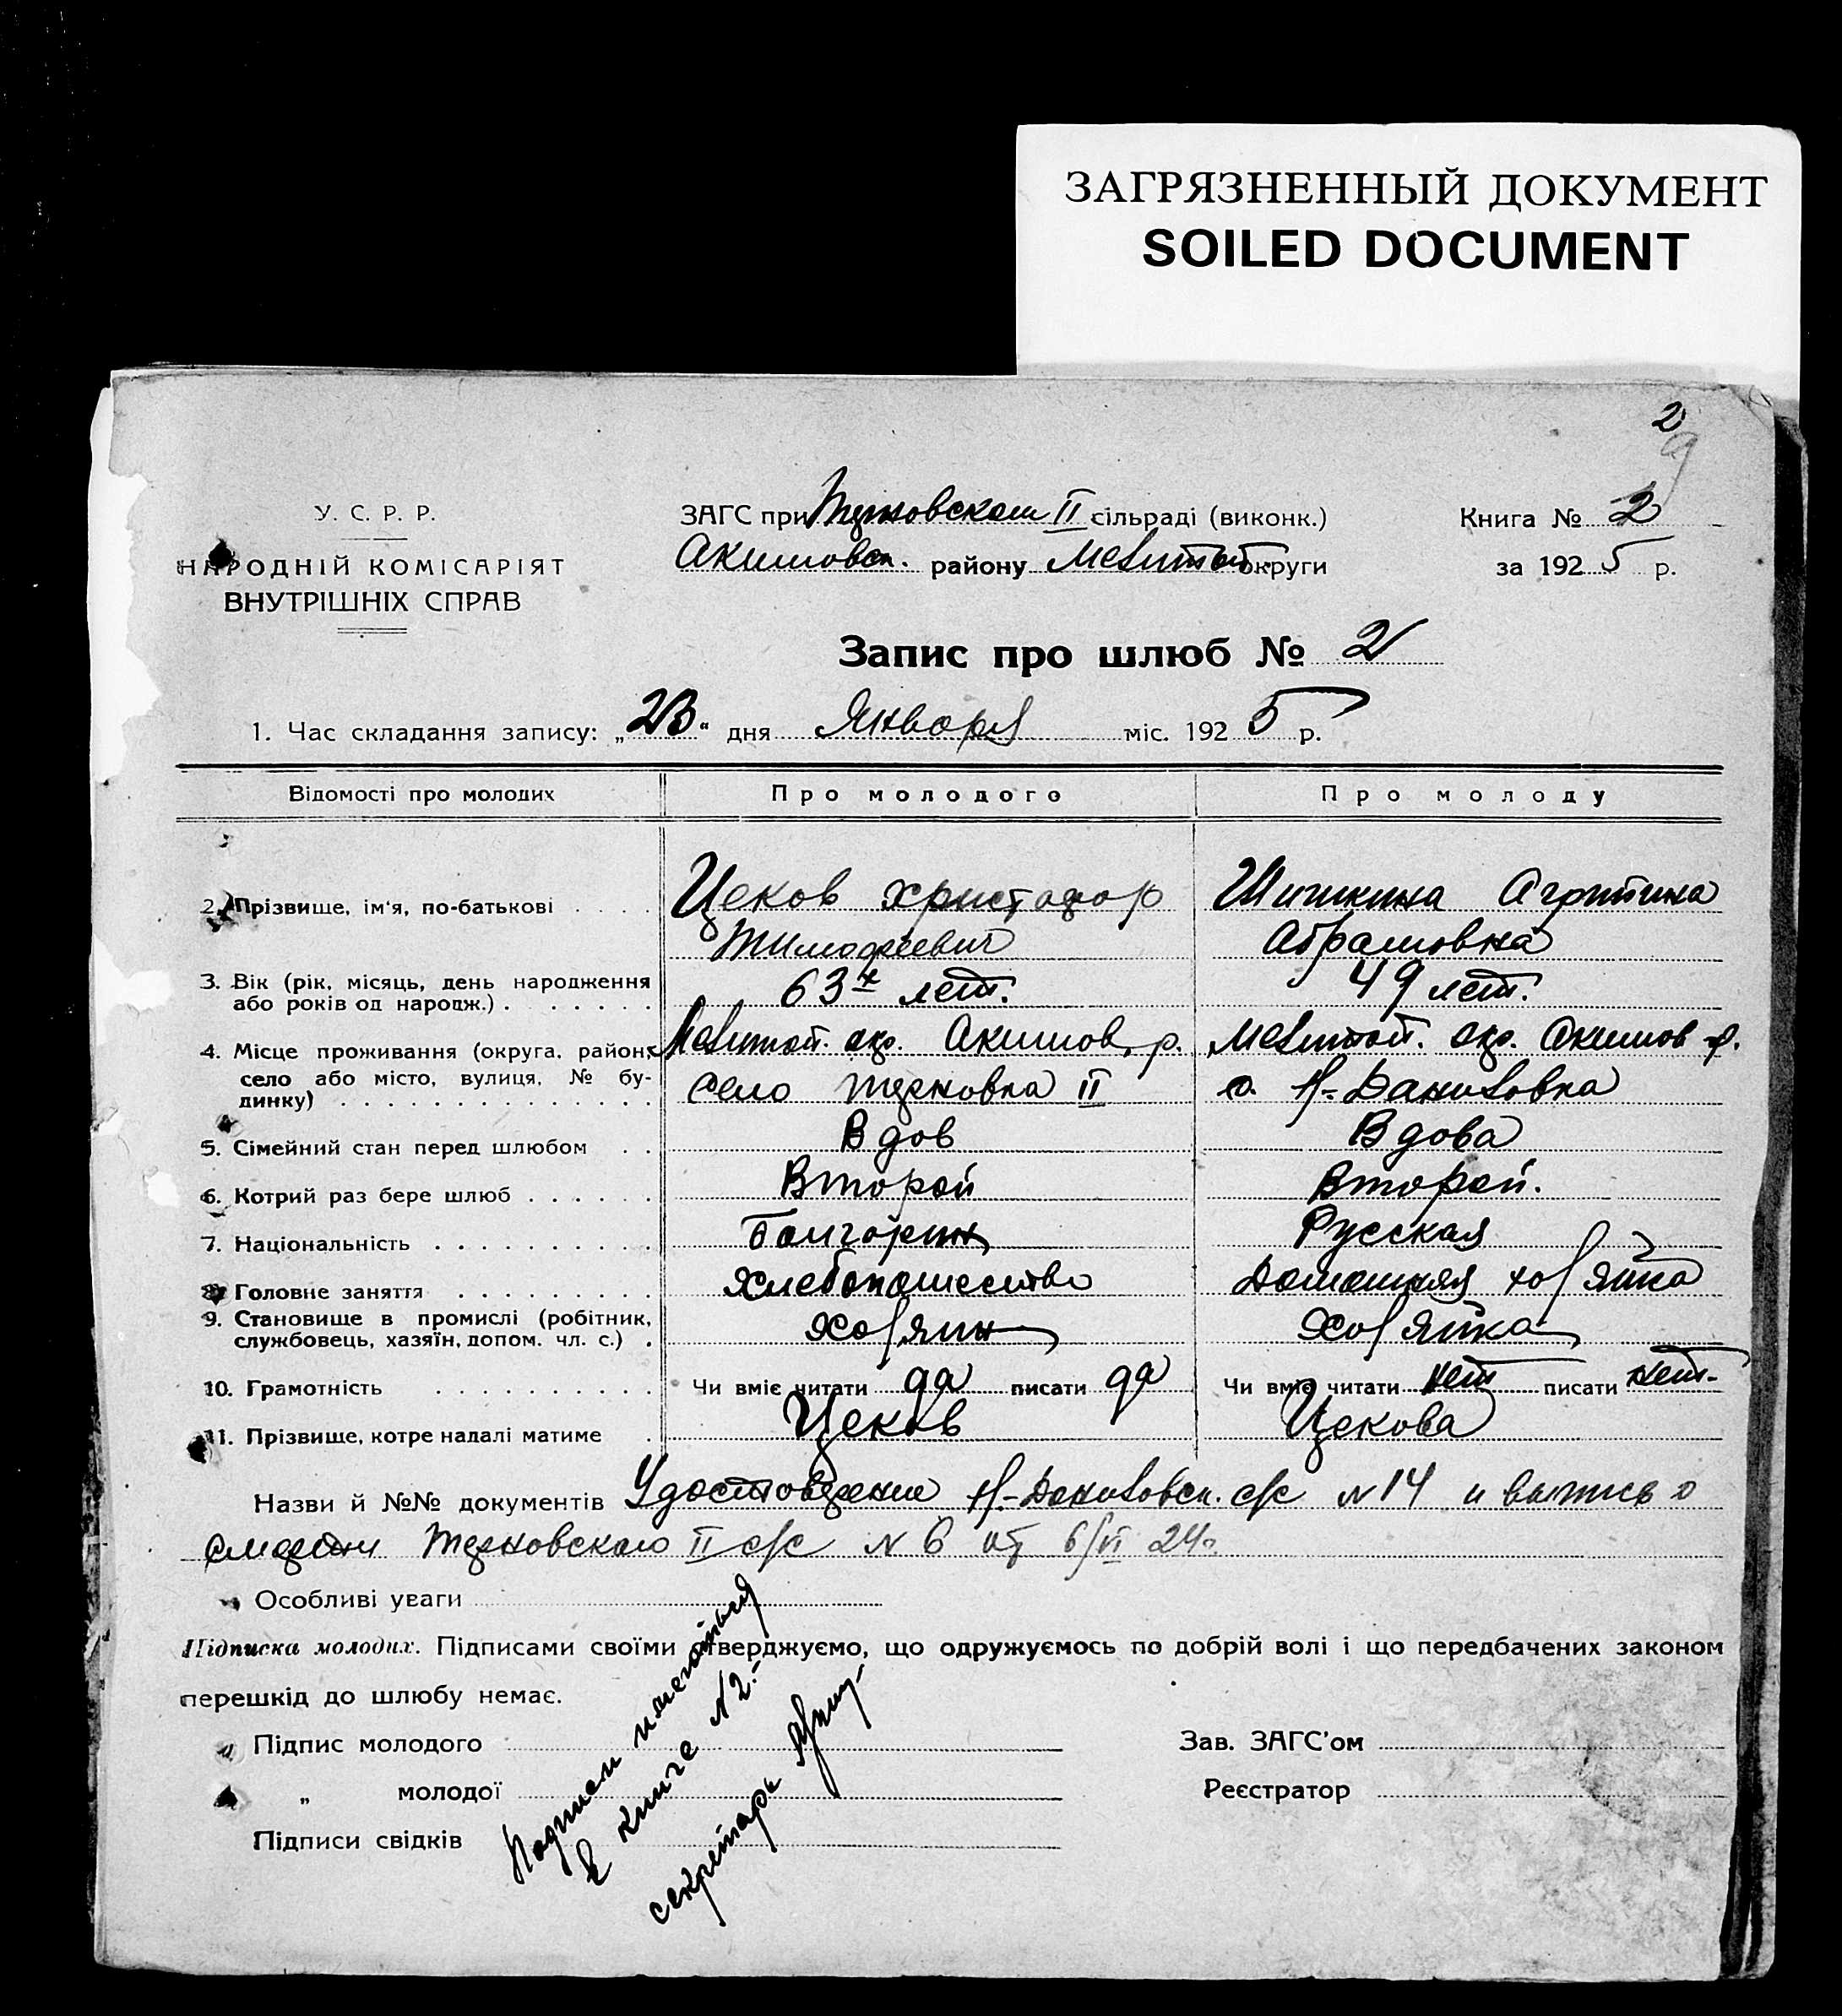 ЗАГРЯЗНЕННЫЙ ДОКУМЕНТ
SOILED DOCUMENT
2
9
У. С. Р. Р.
НАРОДНІЙ КОМІСАРІЯТ
ВНУТРІШНІХ СПРАВ
ЗАГС при II сільраді (виконк.)
Акимовск. району Мелитоп. округи
Книга № 2
за 1925 р.
Запис про шлюб № 2
1. Час складання запису: „23“ дня Января міс. 1925 р.
Відомості про молодих
Про молодого
Про молоду
2. Прізвище, ім'я, по-батькові . . . .
Цеков Христофор
Тимофеевич
Шишкина Агрипина
Абрамовна
3. Вік (рік, місяць, день народження
або років од народж.) . . . . . .
63х лет.
49 лет.
4. Місце проживання (округа, район,
село або місто, вулиця, № бу-
динку) . . . . . . . . . . . . . .
Мелитоп. окр. Акимов. р.
село II
Мелитоп. окр. Акимов р.
с. Н-Даниловка
5. Сімейний стан перед шлюбом . .
Вдов
Вдова
6. Котрий раз бере шлюб . . . . . .
Второй
Второй.
7. Національність . . . . . . . . . .
Болгарин
Русская
8. Головне заняття . . . . . . . . .
Хлебопашество
Домашняя хозяйка
9. Становище в промислі (робітник,
службовець, хазяїн, допом. чл. с.) .
Хозяин
Хозяйка
10. Грамотність . . . . . . . . . .
Чи вміє читати да писати да
Чи вміє читати нет писати нет.
11. Прізвище, котре надалі матиме .
Цеков
Цекова
Назви й №№ документів Удостоверение Н.-Даниловск. с/с №14 и выпись о
смерти II с/с №6 от 6/VI 24г.
Особливі уваги
Підписка молодих. Підписами своїми стверджуємо, що одружуємось по добрій волі і що передбачених законом
перешкід до шлюбу немає.
Підпис молодого
„ молодої
Підписи свідків
Зав. ЗАГС'ом
Реєстратор
Подписи имеються
в книге №2.-
секретарь